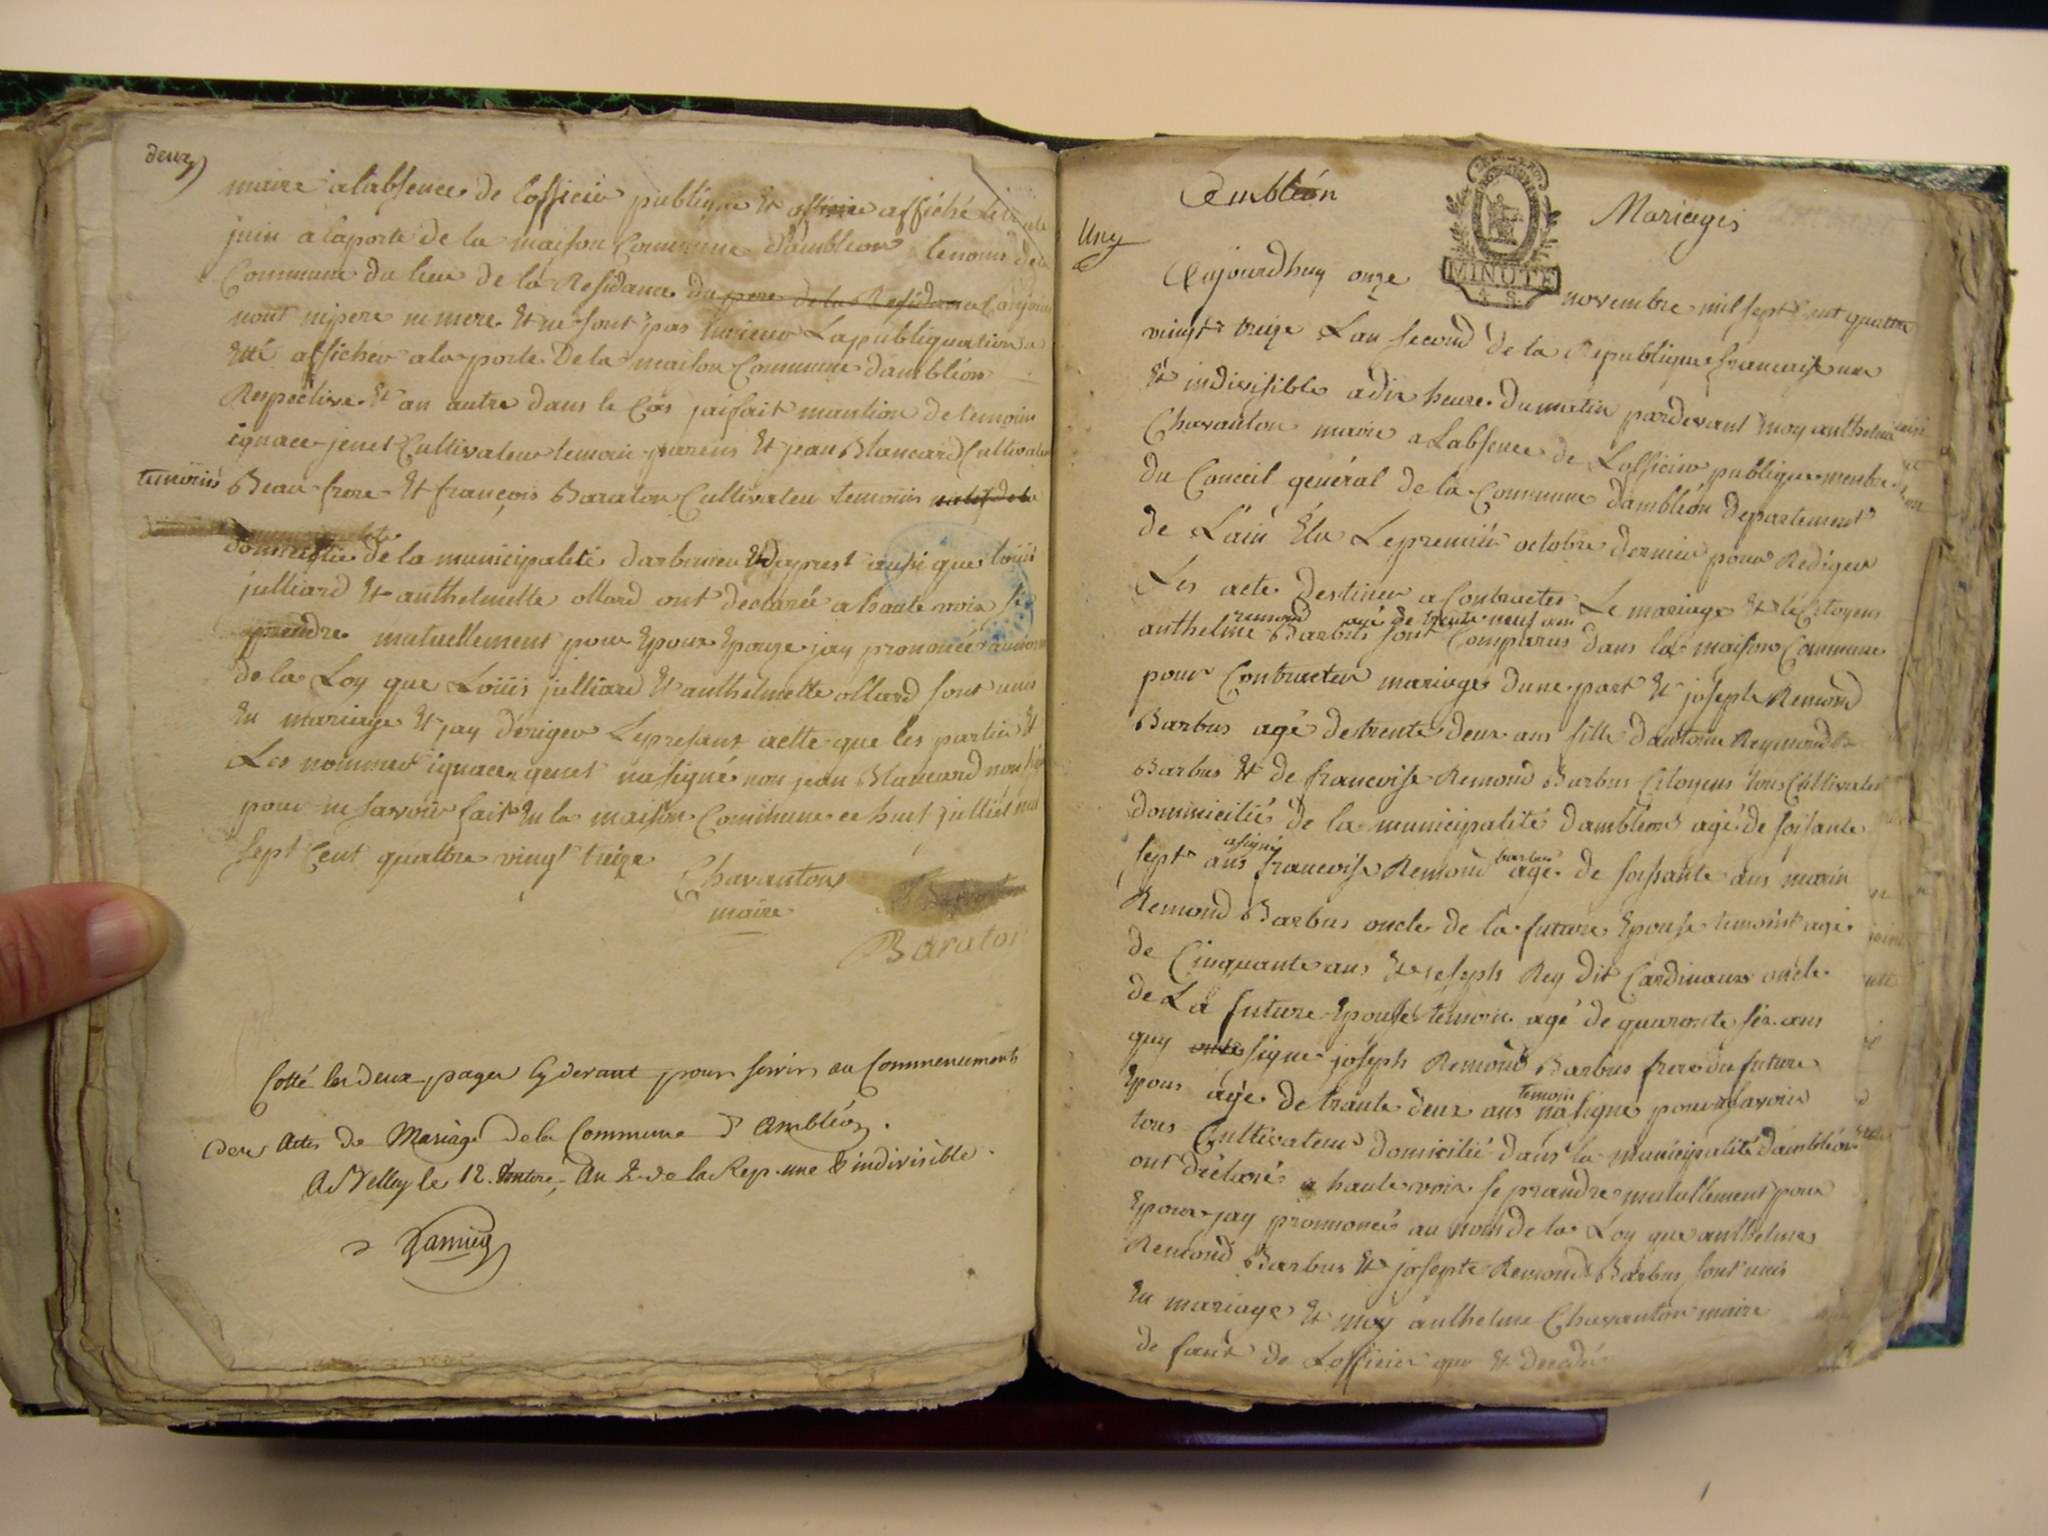 deux)
maire a labsence de lofficier publique Et affiché le
juin a laporte de la maison Commune dambléon le nomis de la
Commune du lieu de la Residance du pere de la Residance
nont nipere ni mere Et ne sont pas la publiquation a
Eté afficher a la porte De la maison Commune dambléon
Respective Et an autre dans le Cas jaifait mantion de temoin
ignace jenet Cultivateur temoin parens Et jean Blancard Cultivateur
temoins Beau frere Et françois Baraton Cultivateur temoins
domicilie de la municipalité darbinieu Et dapres aussi que louis
julliard Et anthelmette ollard ont declarée a haute voix se
prendre mutuellement pour Epoux Epouze jay prononcée au nom
de la Loy que Louis julliard Et anthelmette ollard sont unis
En mariage Et jay dériger Lepresant actte que les parties Et
Les nommer ignace genet na signé non jean Blancard non
pour ne savoir fait En la maison Commune ce huit julliet mil
sept Cent quattre vingt treize
Chavanton
maire
Baraton
Cotté les deux pages Cy devant pour servir au Commencement
des Actes de Mariage de la Commune d'Ambléon.
A Belley le 12. , An 2. de la Rep. une & indivisible.
Ambléon
Mariages
MINUTE
4 S
Uny
Aujourdhuy onze novembre mil sept Cent quattre
vingt treize Lan second de la Republique francaise une
Et indivisible a dix heure du matin pardevant moy anthelme
Chavanton maire a Labsence de Lofficier publique menbre
du Conceil général de la Commune dambléon departement
de Lain Elu Le premier octobre dernier pour Rediger
Les acte Destiner a Contracter Le mariage Et le Citoyens
remond agé de trente neuf ans
anthelme Barbus sont Comparus dans la maison Commune
pour Contracter mariage dune part Et josepte Remond
Barbus agé de trente deux ans fille dantoine Reymond
Barbus Et de francoise Remond Barbus Citoyens tous Cultivateur
domicilié de la municipalité dambléon agé de soisante
asigné barbus
sept ans francoise Remond agé de soisante ans marin
Remond Barbus oncle de la future Epouse temoint agé
de Cinquante ans Et joseph Rey dit Cardinaux oncle
de La future Epouse temoin agé de quarante six ans
quy signe joseph Remond Barbus frere du future
temoin
Epoux agé de trante deux ans na signe pour ne savoir
tous Cultivateur domicilié dans la municipalité dambléon
ont déclaré a haute voix se prandre mutullement pour
Epoux jay prononcés au nom de la Loy que anthelme
Remond Barbus Et josepte Remond Barbus sont unis
En mariage Et moy anthelme Chavanton maire
de faut de Lofficier que Et decedé